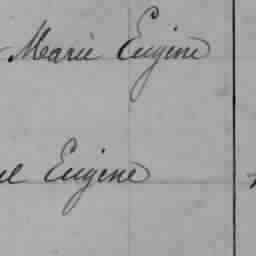 Marie Eugène
Eugène